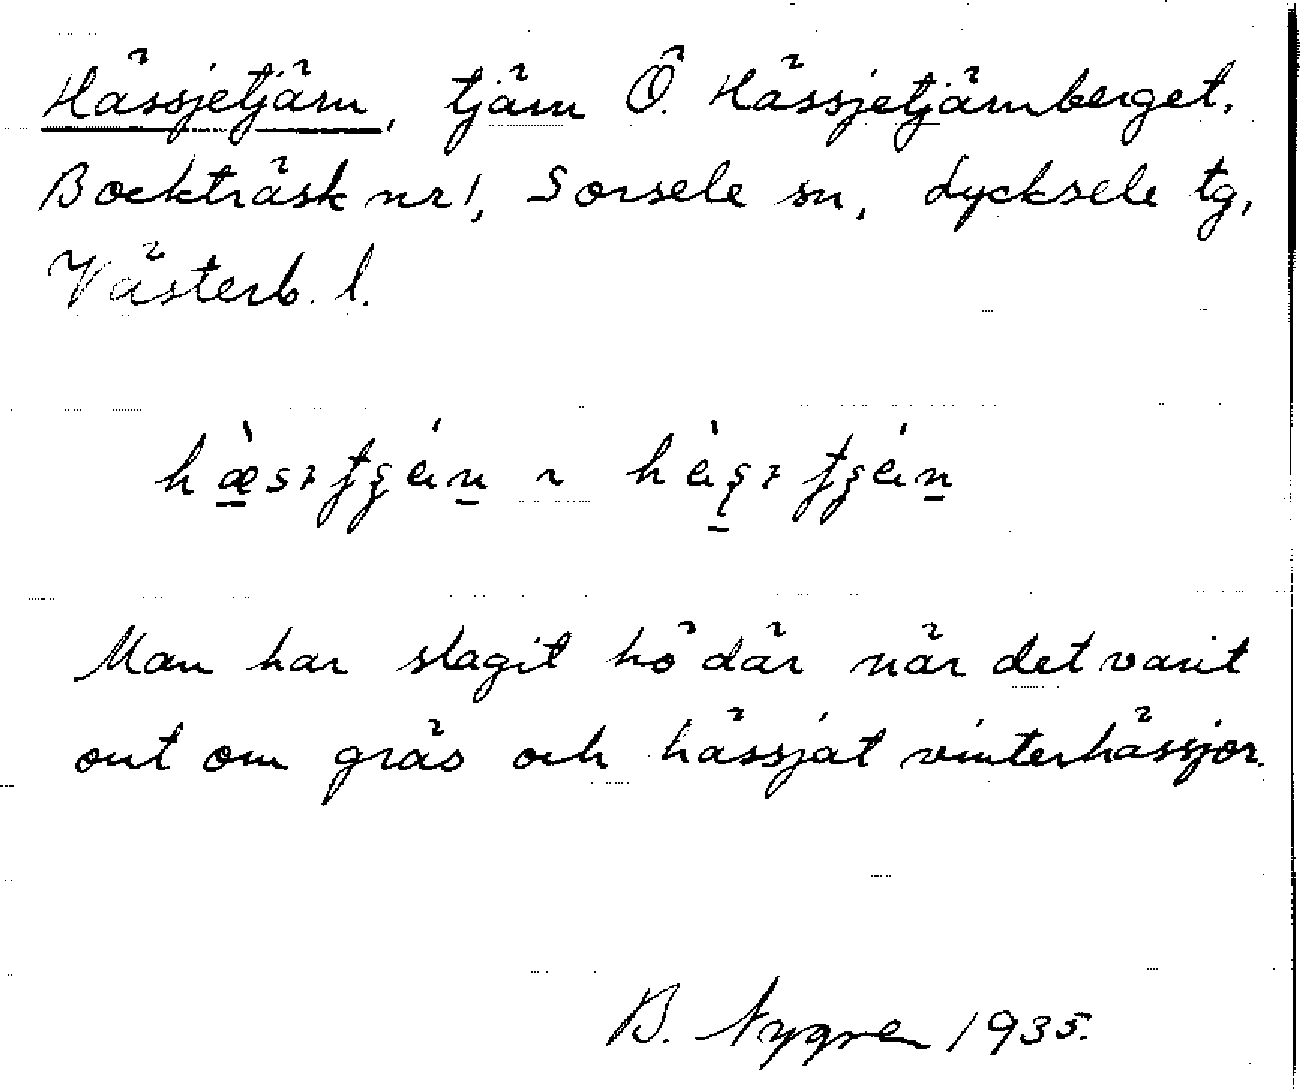 Hässjetjärn, tjärn Ö. Hässjetjärnberget.
Bockträsk nr 1, Sorsele sn, Lycksele tg,
Västerb. l.
Man har slagit hö där när det varit
ont om gräs och hässjat vinterhässjor.
B. Nygren 1935.